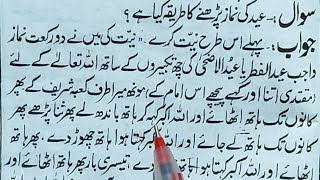 سوال :- عید کی نماز پڑھنے کا طریقہ کیا ہے ؟
جواب :- پہلے اس طرح نیت کرے " نیت کی میں نے دو رکعت نماز
واجب عید الفطر یا عید الاضحیٰ کی چھ تکبیروں کے ساتھ اللہ تعالےٰ کے لئے
(مقتدی اتنا اور کہے پیچھے اس امام کے) منھ میرا طرف کعبہ شریف کے پھر
کانوں تک ہاتھ اٹھائے اور اللہ اکبر کہہ کر ہاتھ باندھ لے پھر ثنا پڑھے پھر
کانوں تک ہاتھ لے جائے اور اللہ اکبر کہتا ہوا ہاتھ چھوڑ دے ، پھر ہاتھ
اٹھائے اور اللہ اکبر کہتا ہوا ہاتھ چھوڑ دے ، تیسری بار پھر ہاتھ اٹھائے اور